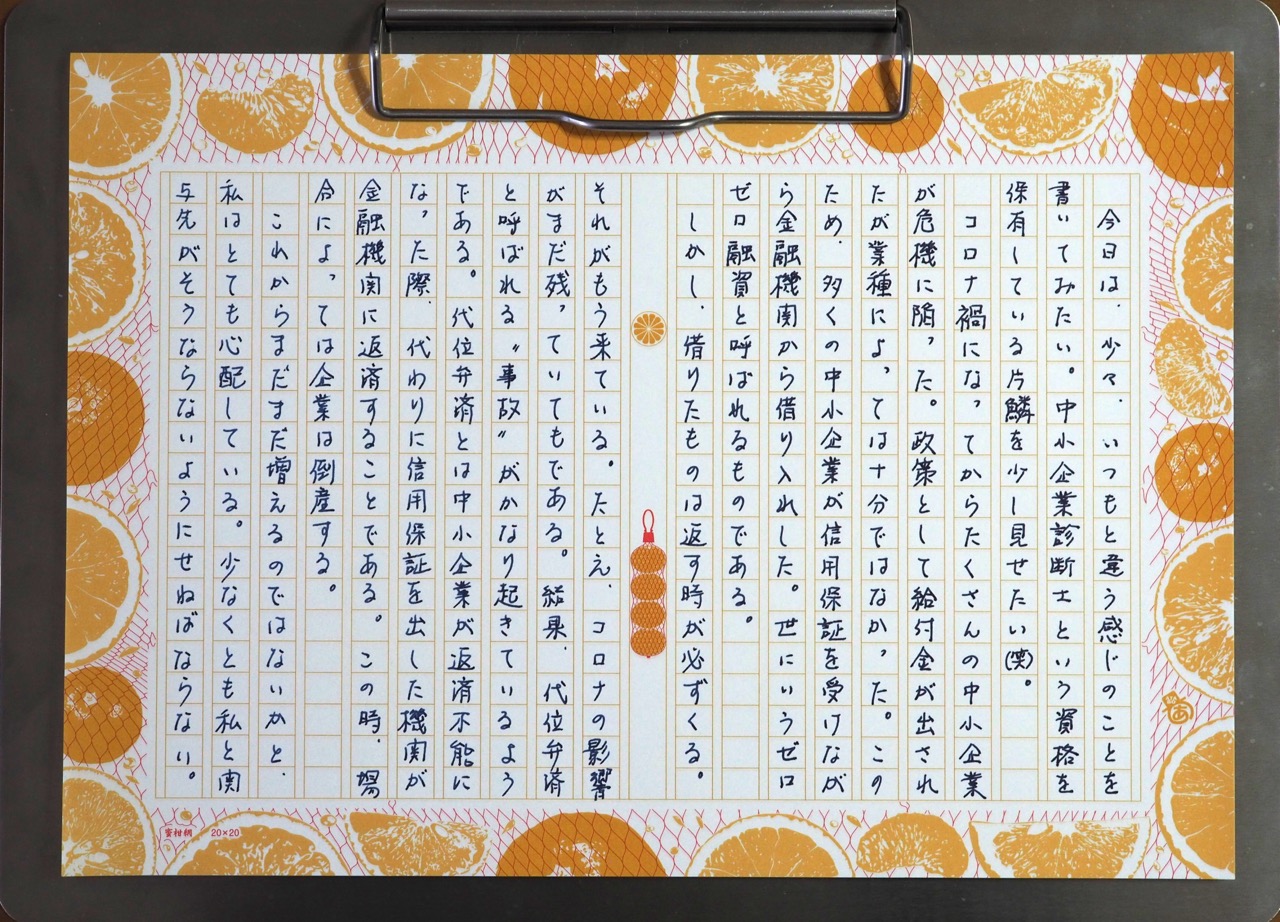 今日は、少々、いつもと違う感じのことを
書いてみたい。中小企業診断士という資格を
保有している片鱗を少し見せたい(笑)。
コロナ禍になってからたくさんの中小企業
が危機に陥った。政策として給付金が出され
たが業種によっては十分ではなかった。この
ため、多くの中小企業が信用保証を受けなが
ら金融機関から借り入れした。世にいうゼロ
ゼロ融資と呼ばれるものである。
しかし、借りたものは返す時が必ずくる。
それがもう来ている。たとえ、コロナの影響
がまだ残っていてもである。結果、代位弁済
と呼ばれる〝事故〟がかなり起きているよう
である。代位弁済とは中小企業が返済不能に
なった際、代わりに信用保証を出した機関が
金融機関に返済することである。この時、場
合によっては企業は倒産する。
これからまだまだ増えるのではないかと、
私はとても心配している。少なくとも私と関
与先がそうならないようにせねばならない。
蜜柑網 20×20